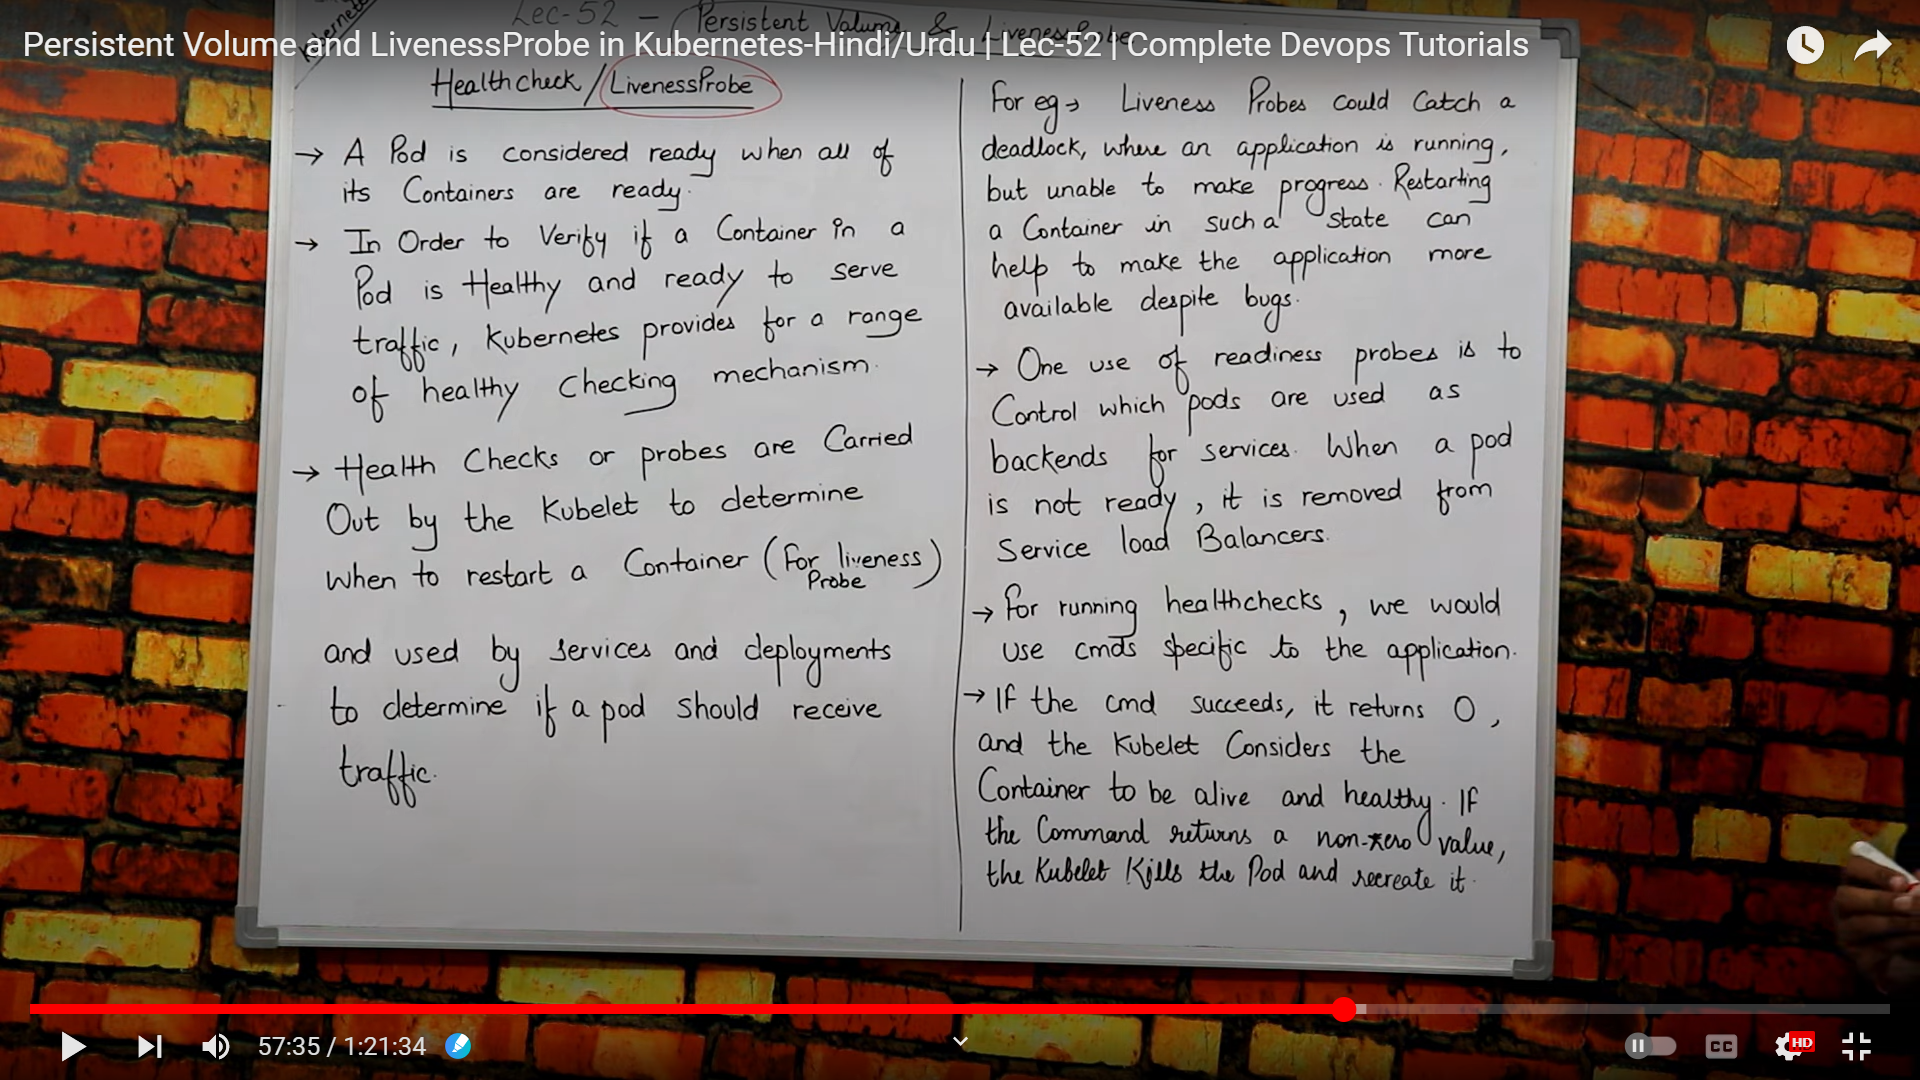 Persistent Volume and LivenessProbe in Kubernetes-Hindi/Urdu | Lec-52 | Complete Devops Tutorials
Lec-52 - Persistent Volume & LivenessProbe
Healthcheck / LivenessProbe
→ A Pod is considered ready when all of
its Containers are ready.
→ In Order to Verify if a Container in a
Pod is Healthy and ready to serve
traffic, Kubernetes provides for a range
of healthy Checking mechanism.
→ Health Checks or probes are Carried
Out by the Kubelet to determine
when to restart a Container (for liveness)
Probe
and used by services and deployments
to determine if a pod should receive
traffic.
For eg → Liveness Probes could Catch a
deadlock, where an application is running,
but unable to make progress. Restarting
a Container in such a state can
help to make the application more
available despite bugs.
→ One use of readiness probes is to
Control which pods are used as
backends for services. When a pod
is not ready, it is removed from
Service load Balancers.
→ For running healthchecks, we would
use cmds specific to the application.
→ If the cmd succeeds, it returns 0,
and the Kubelet Considers the
Container to be alive and healthy. If
the Command returns a non-zero value,
the Kubelet Kills the Pod and recreate it.
57:35 / 1:21:34
CC
HD